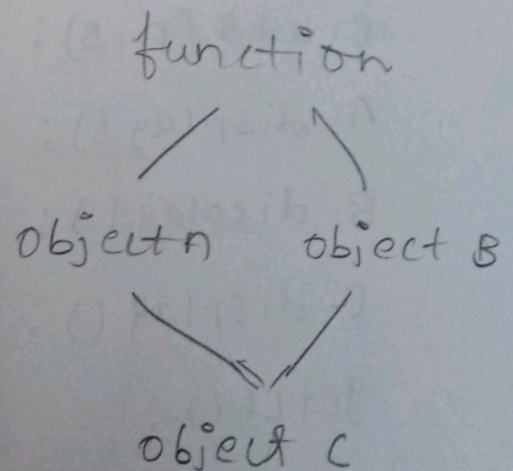 function
object A object B
object C